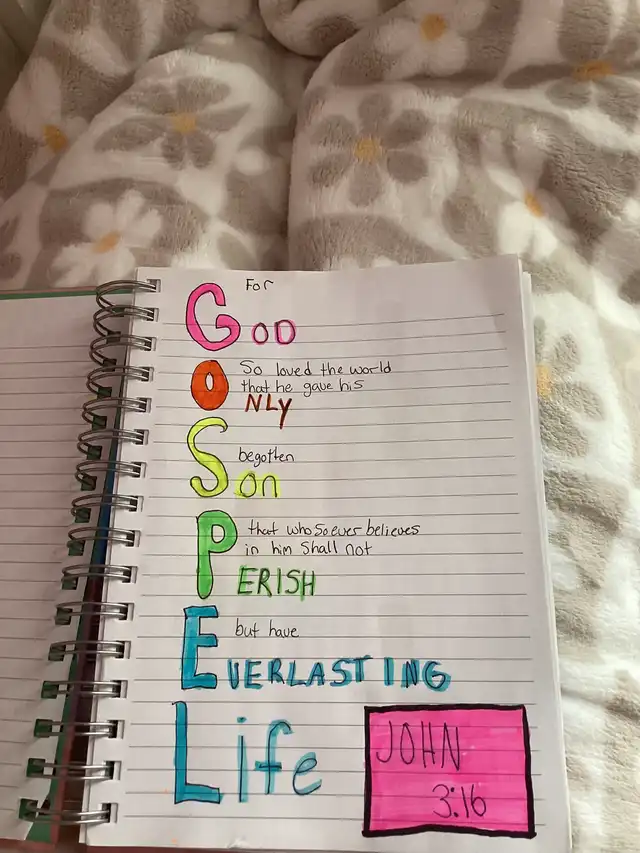 For
GOD
So loved the world
that he gave his
ONLY
begotten
SOn
that whosoever believes
in him shall not
PERISH
but have
EVERLASTING
Life
JOHN
3:16